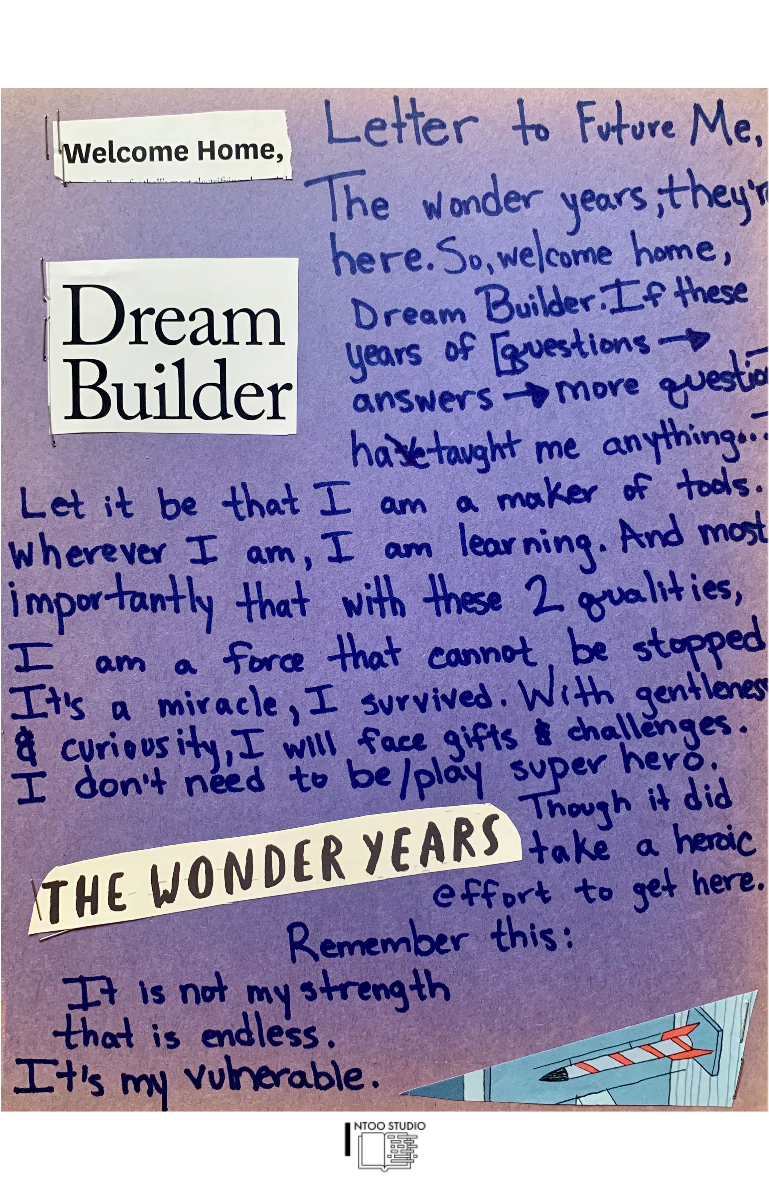 Welcome Home,
Dream
Builder
Letter to Future Me,
The wonder years, they'r
here. So, welcome home,
Dream Builder. If these
years of [questions →
answers → more questio
have taught me anything...
Let it be that I am a maker of tools.
Wherever I am, I am learning. And most
importantly that with these 2 qualities,
I am a force that cannot be stopped
It's a miracle, I survived. With gentleness
& curiousity, I will face gifts & challenges.
I don't need to be/play super hero.
Though it did
take a heroic
effort to get here.
THE WONDER YEARS
Remember this:
It is not my strength
that is endless.
It's my vulnerable.
INTOO STUDIO